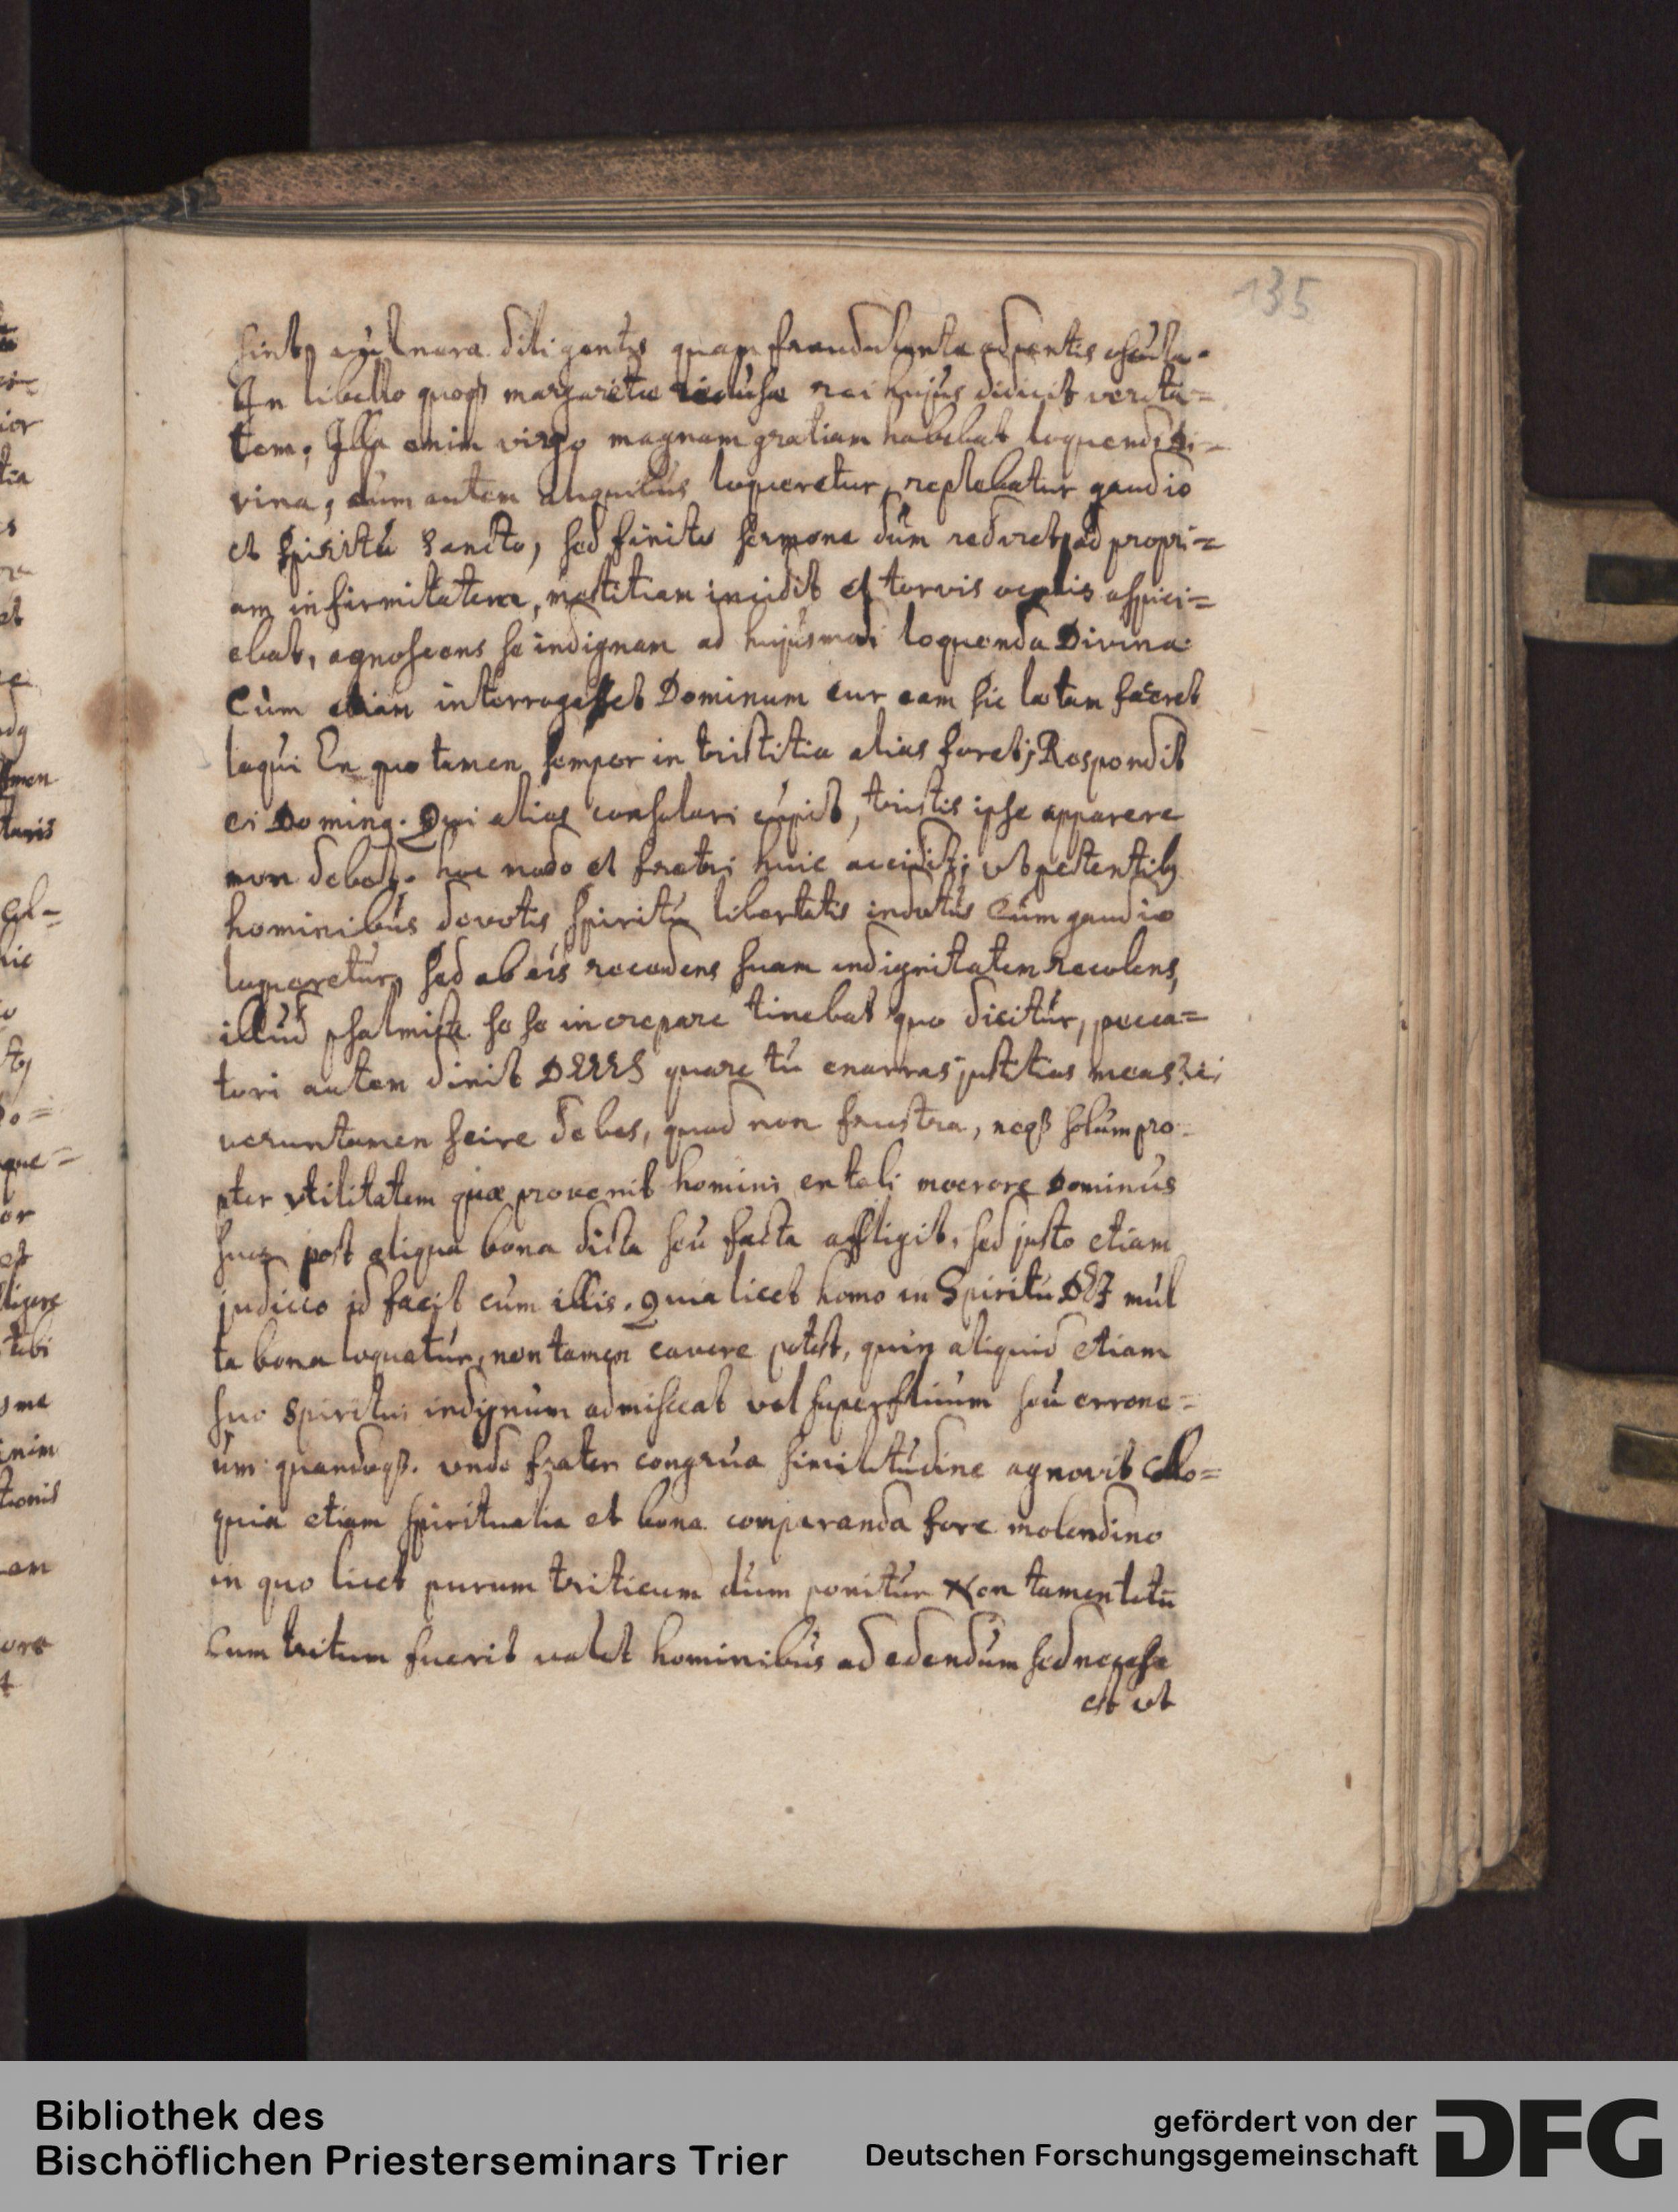 135
sint vulnera diligentis quam fraudulenta odientis oscula.
In libello quoqß margaretæ reclusæ rei hujus didicit verita=
tem; Illa enim virgo magnam gratiam habebat loquendi di=
vina, dum autem aliquibus loqueretur, replebatur gaudio
et spiritu sancto, sed finito sermone dum rediret ad propri=
am infirmitatem, mestitiam incidit et torvis oculis aspici=
ebat, agnoscens se indignam ad hujusmodi loquenda Divina.
Cum etiam interrogasset Dominum cur eam sic lætam faceret
loqui En quo tamen semper in tristitia alias foret; Respondit
ei Doming. Qui alios consolari cupit, tristis ipse apparere
non debet. hoc modo et fratri huic accidit; ut petentibg
hominibus devotis spiritu libertatis indutus Cum gaudio
loqueretur, sed ab eis recedens suam indignitatem recolens,
illud psalmistæ se se increpare timebat quo dicitur, pecca=
tori autem dixit DEUS quare tu enarras justitias meas?
veruntamen scire debes, quod non frustra, neqß solum pro=
pter vtilitatem quæ provenit homini en tali moerore Dominus
suos post aliqua bona dicta seu facta affligit, sed justo etiam
judicio id facit cum illis. Quia licet homo in Spiritu DEI mul
ta bona loquatur, non tamen cavere potest, quin aliquid etiam
suo Spiritui indignum admisceat vel superfluum seu errone=
um quandoqß. unde frater congrua similitudine agnovit Collo=
quia etiam spiritualia et bona comparanda fore molendino
in quo licet purum triticum dum ponitur Non tamen totū
Cum tritum fuerit valet hominibus ad edendum sed necesse
est ut
Bibliothek des
Bischöflichen Priesterseminars Trier
gefördert von der
Deutschen Forschungsgemeinschaft
DFG